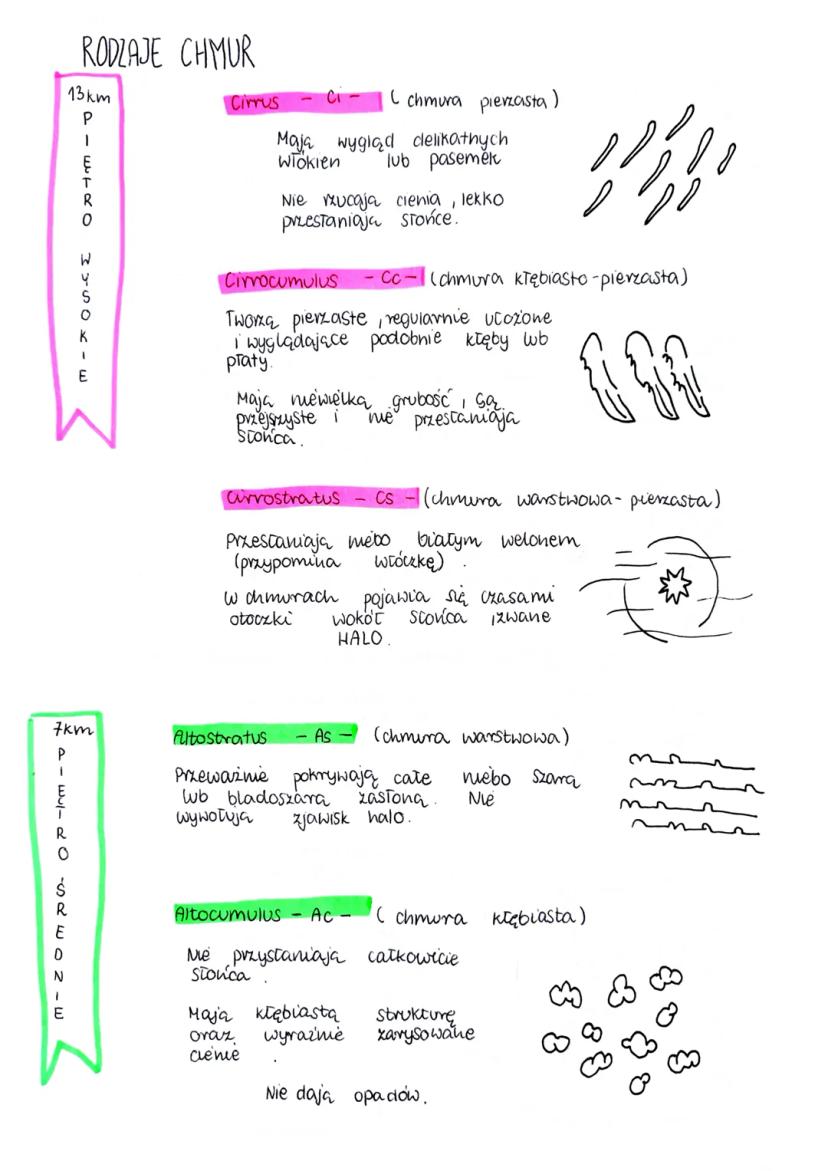 RODZAJE CHMUR
13km
PIĘTRO WYSOKIE
Cirrus - Ci - (chmura pierzasta)
Mają wygląd delikatnych
włókien lub pasemek
Nie rzucają cienia, lekko
przesłaniają słońce.
Cirrocumulus - Cc - (chmura kłębiasto-pierzasta)
Tworzą pierzaste, regularnie ułożone
i wyglądające podobnie kłęby lub
płaty.
Mają niewielką grubość, są
przejrzyste i nie przesłaniają
słońca.
Cirrostratus - Cs - (chmura warstwowa-pierzasta)
Przesłaniają niebo białym welonem
(przypomina włóczkę).
W chmurach pojawia się czasami
otoczki wokół słońca, zwane
HALO.
7km
PIĘTRO ŚREDNIE
Altostratus - As - (chmura warstwowa)
Przeważnie pokrywają całe niebo szarą
lub bladoszarą zasłoną. Nie
wywołują zjawisk halo.
Altocumulus - Ac - (chmura kłębiasta)
Nie przysłaniają całkowicie
słońca.
Mają kłębiastą strukturę
oraz wyraźnie zarysowane
cienie.
Nie dają opadów.